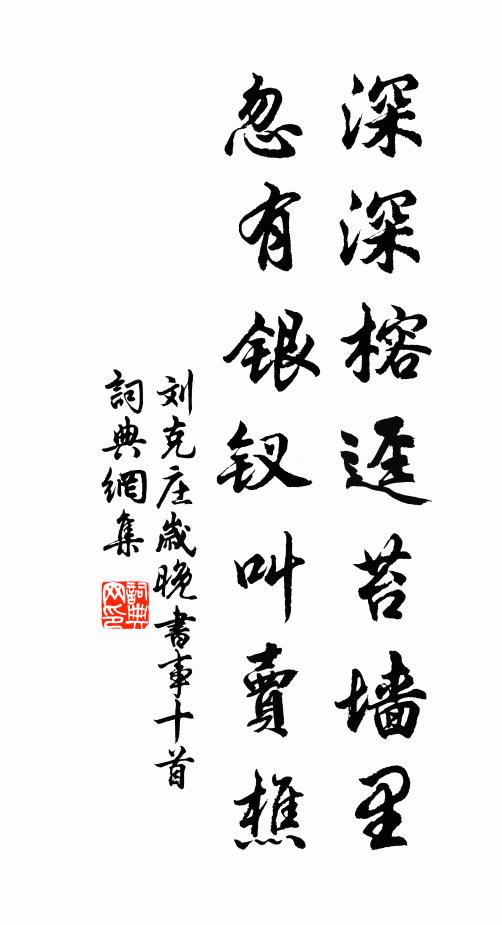 深深榕迳苔墙里
忽有银钗叫賣樵
刘克庄歲晚書事十首
詞典網集
詞典网印